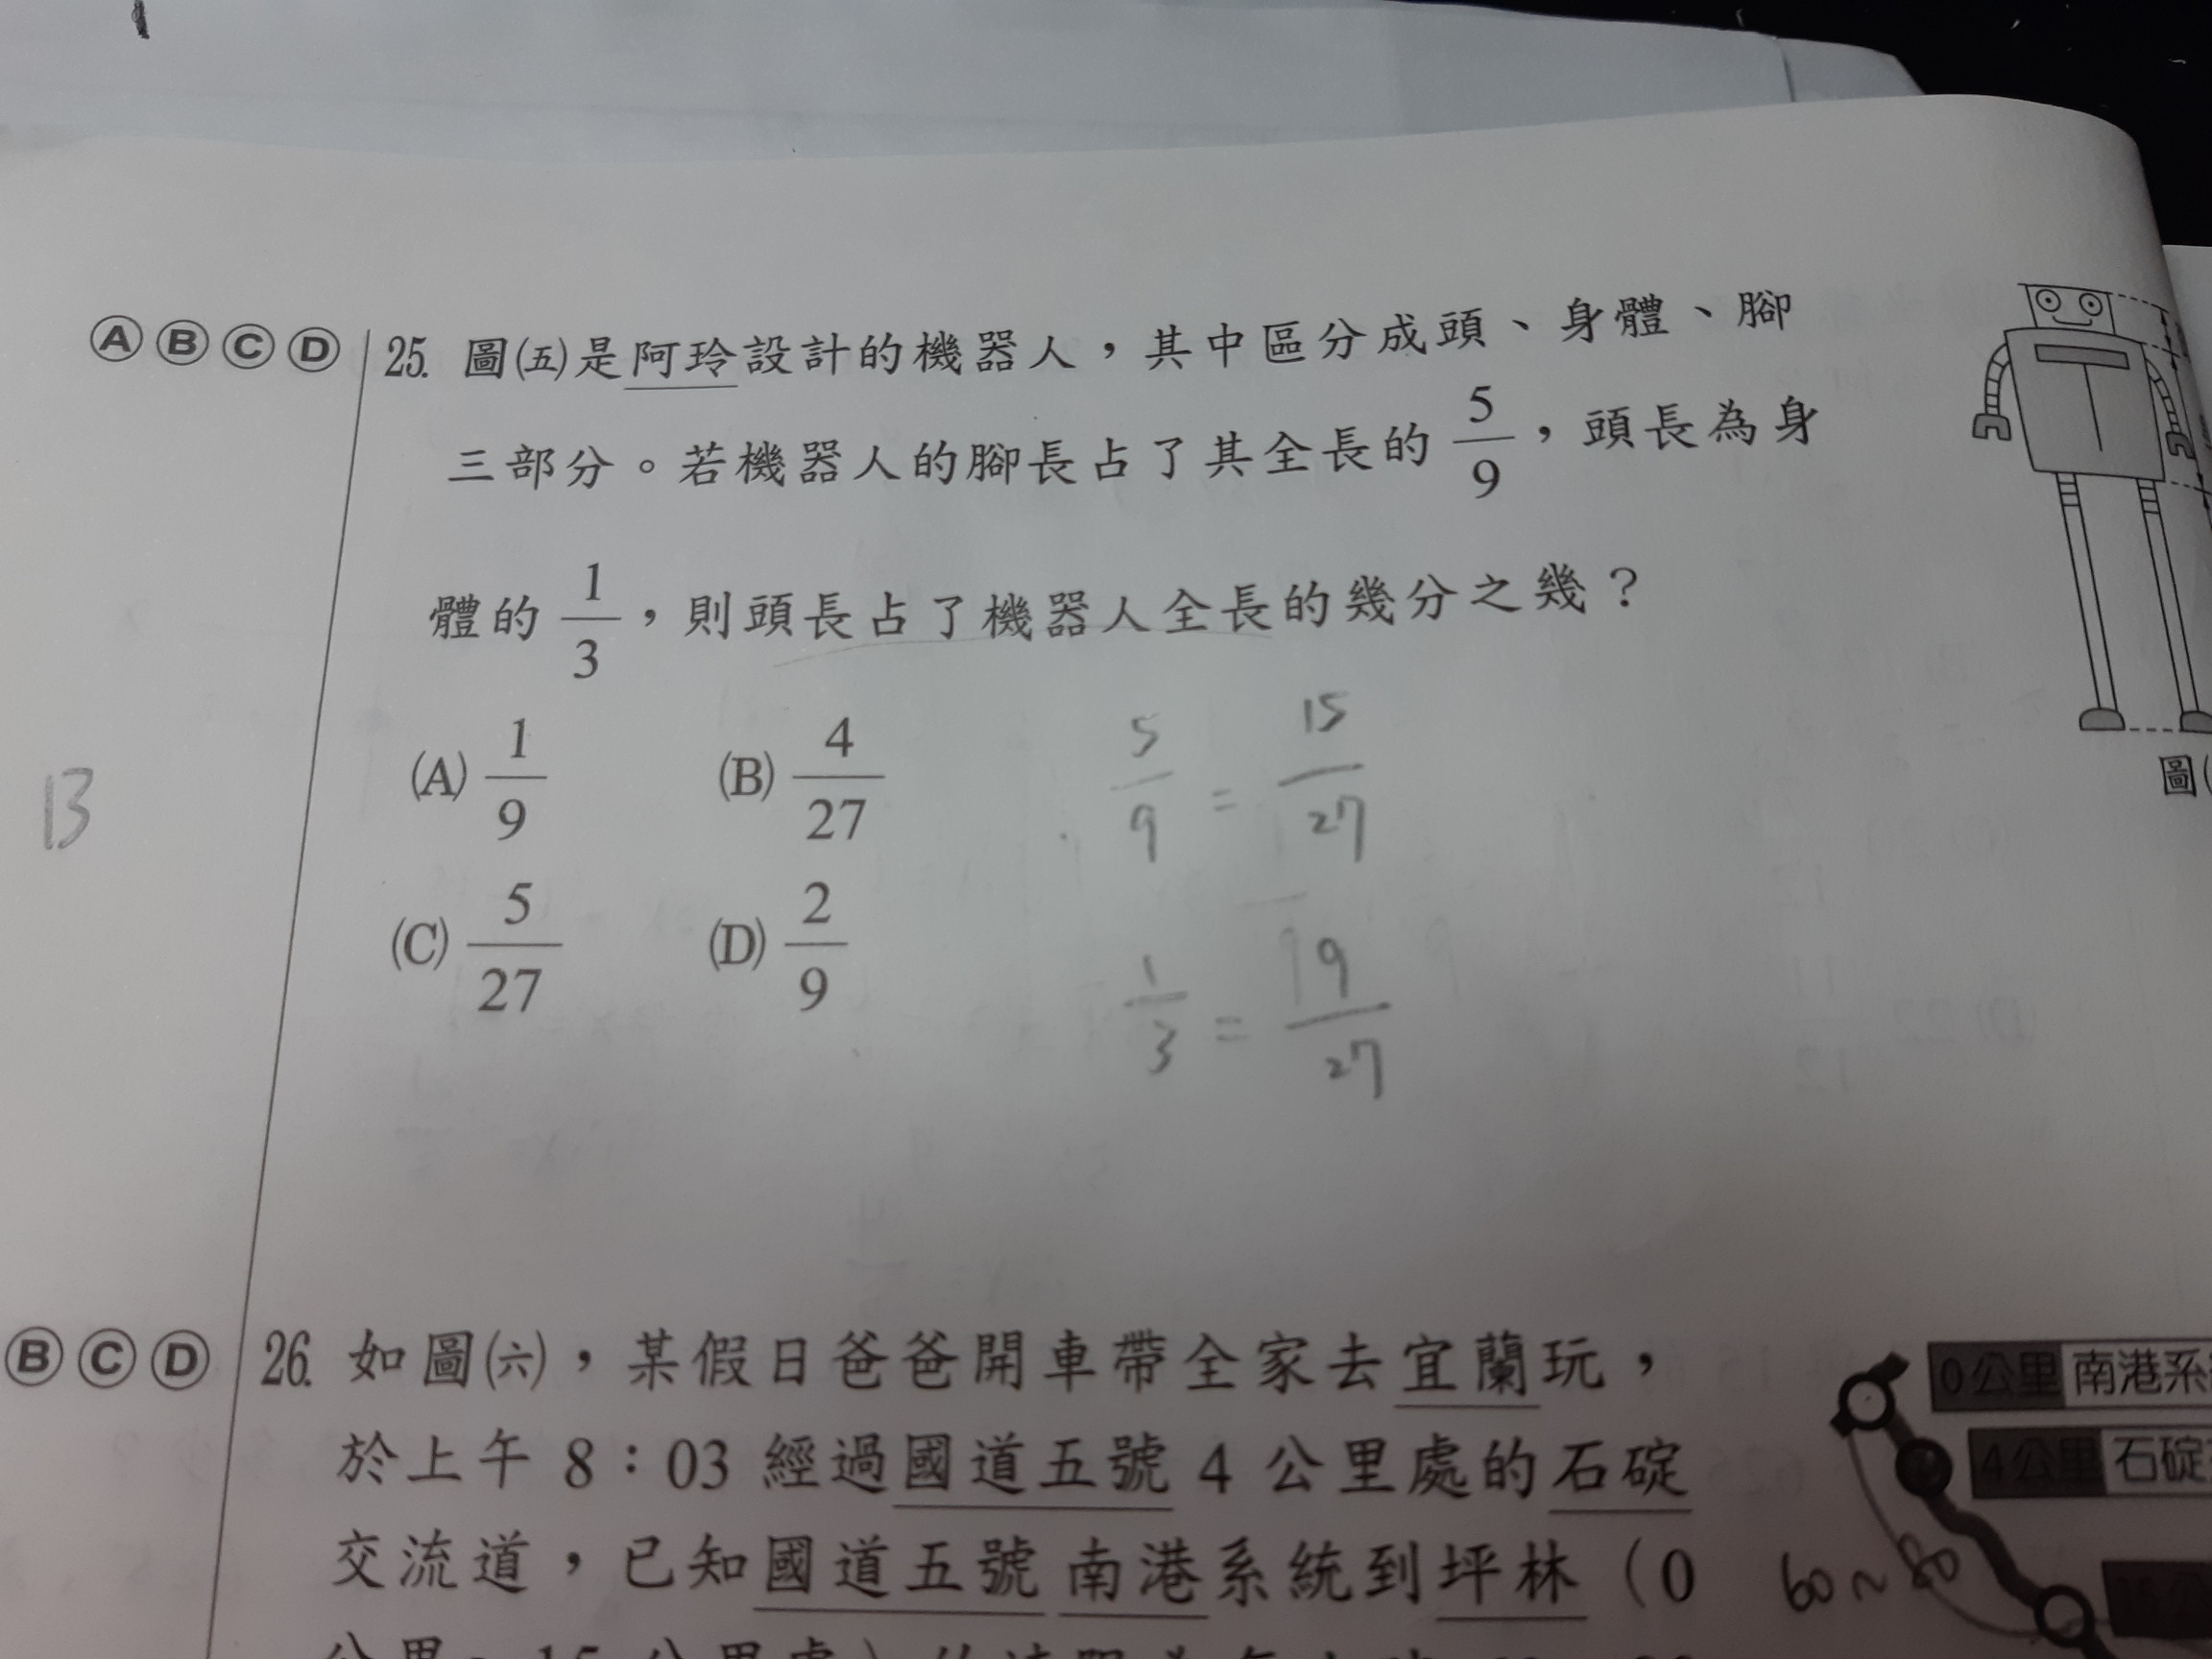 Ⓐ Ⓑ Ⓒ Ⓓ 25. 圖㈤是阿玲設計的機器人，其中區分成頭、身體、腳
三部分。若機器人的腳長占了其全長的 5/9，頭長為身
體的 1/3，則頭長占了機器人全長的幾分之幾？
(A) 1/9 (B) 4/27
(C) 5/27 (D) 2/9
5/9 = 15/27
1/3 = 9/27
圖(
Ⓑ Ⓒ Ⓓ 26. 如圖㈥，某假日爸爸開車帶全家去宜蘭玩，
於上午 8：03 經過國道五號 4 公里處的石碇
交流道，已知國道五號南港系統到坪林（0
60~80
0公里 南港系
4公里 石碇